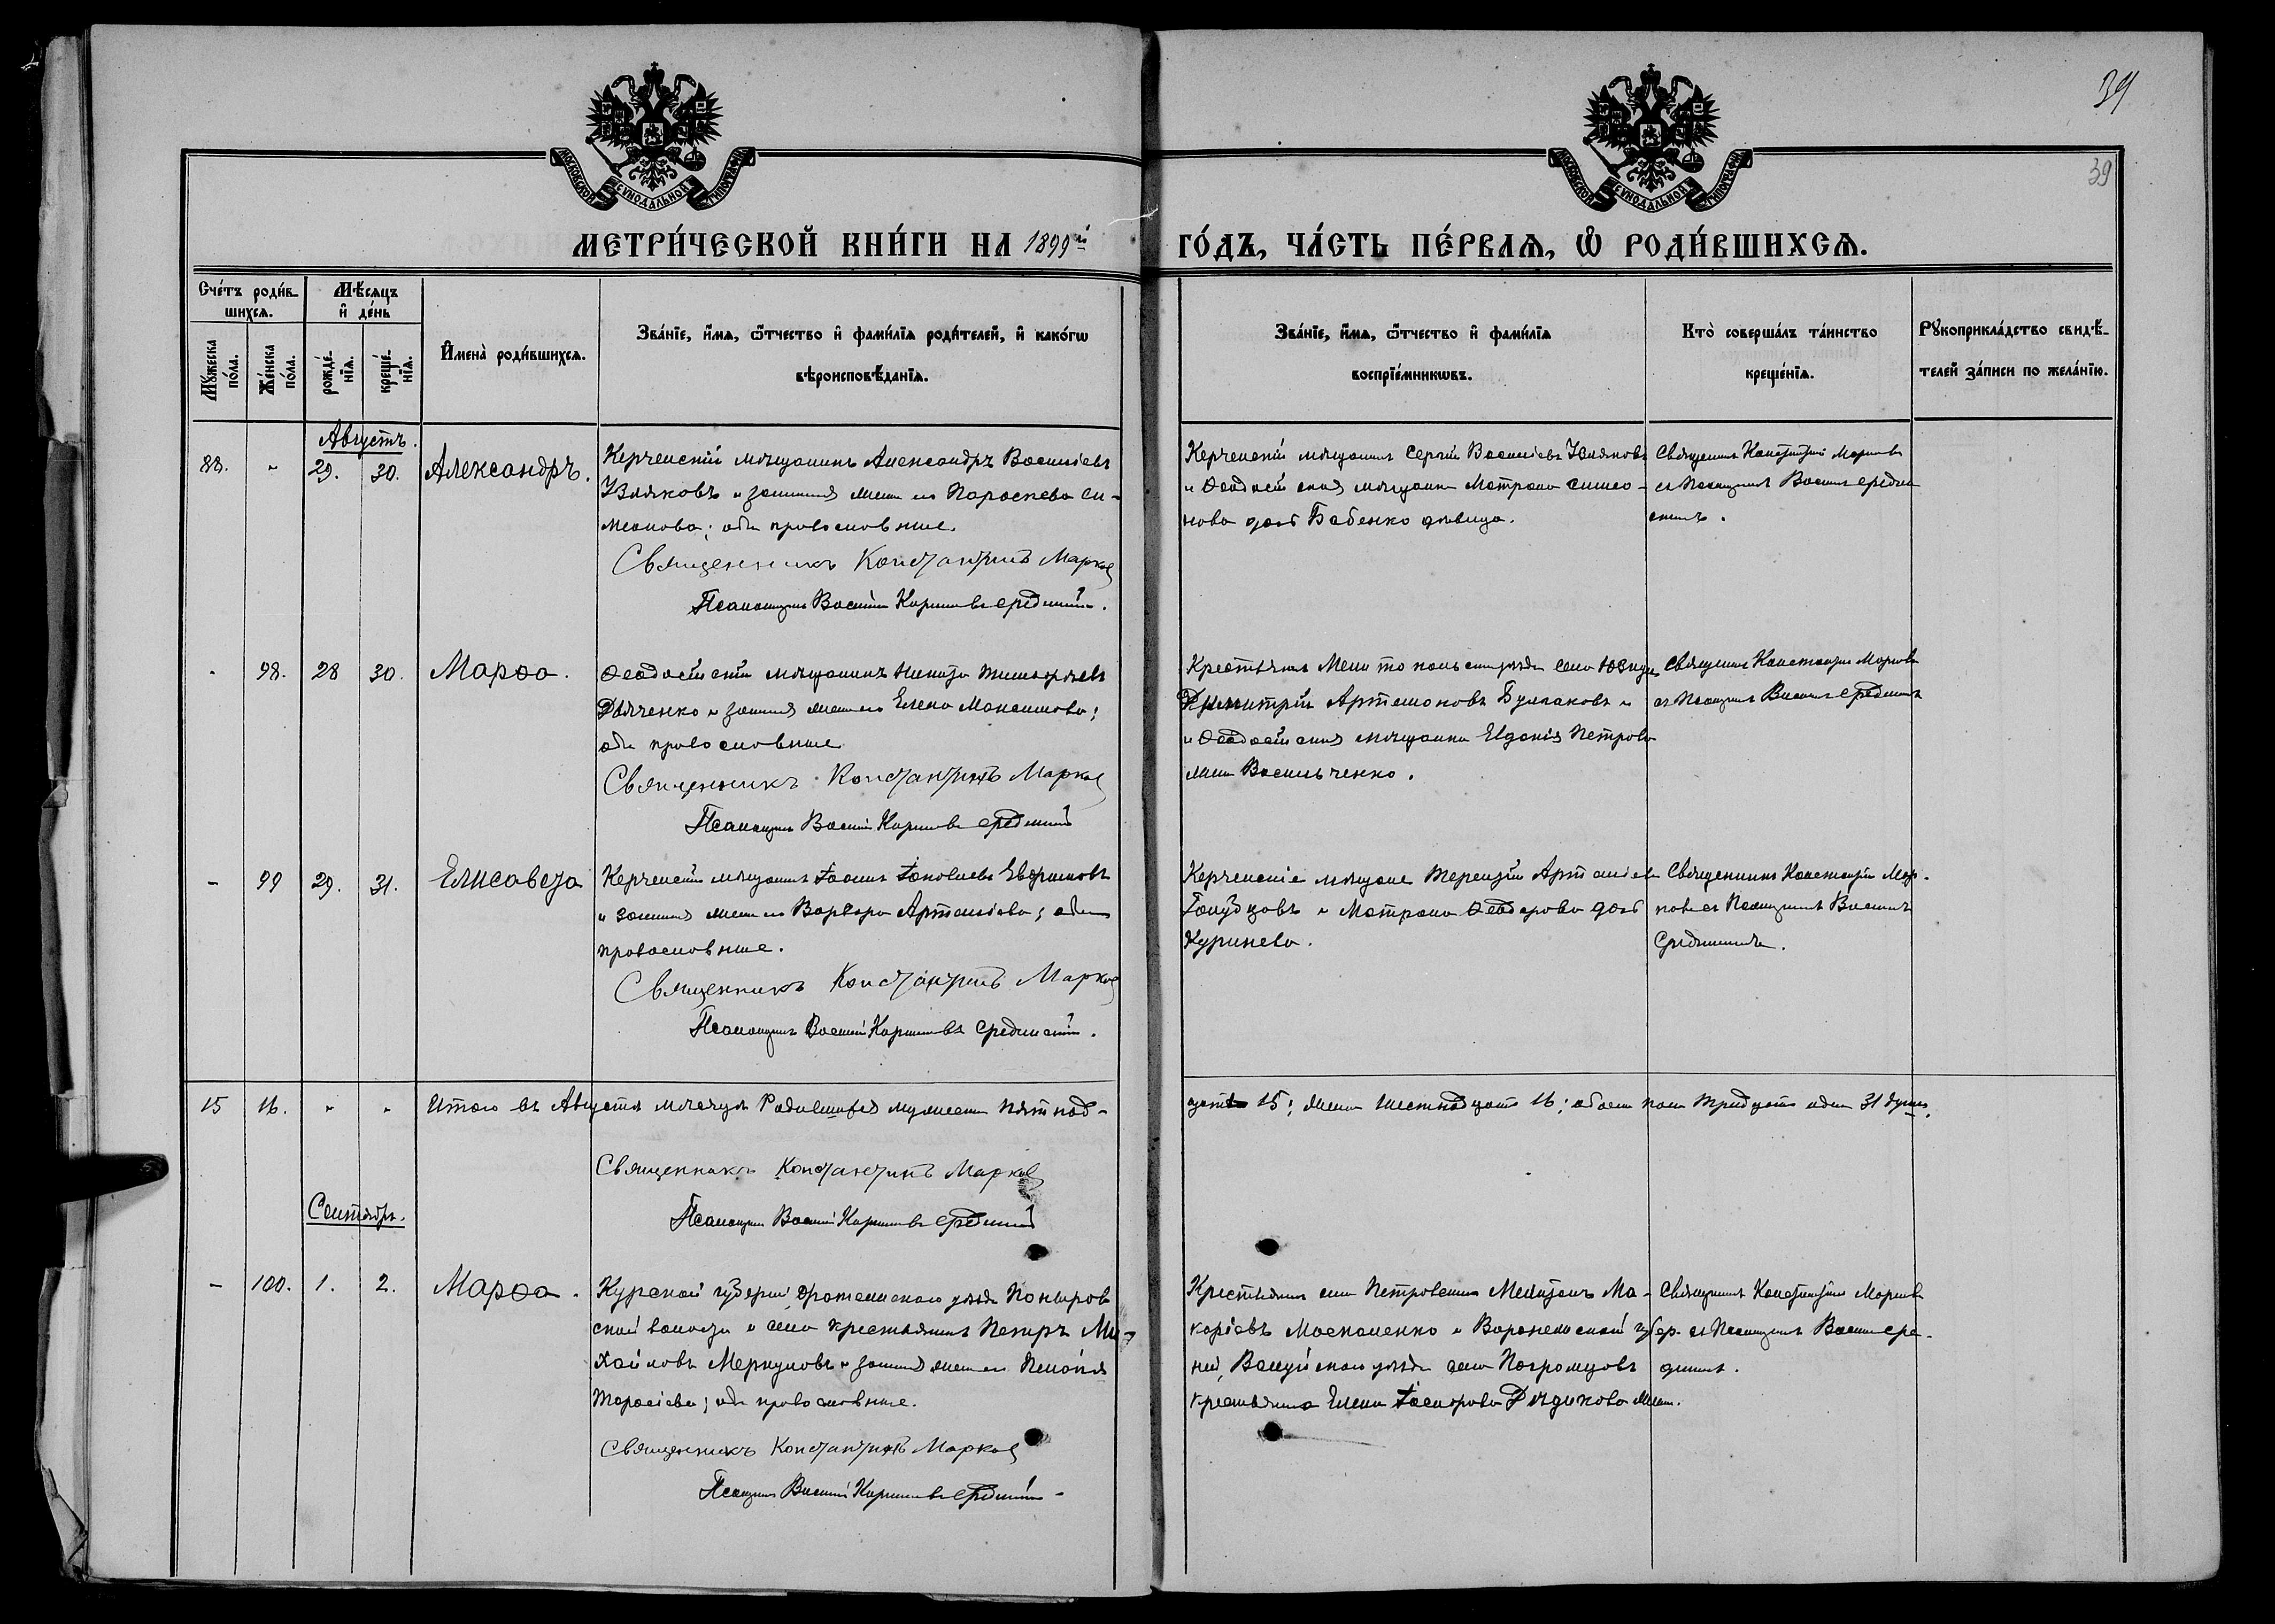 39
39
МОСКОВСКОЙ СѴНОДАЛЬНОЙ ТИПОГРАФІИ
МОСКОВСКОЙ СѴНОДАЛЬНОЙ ТИПОГРАФІИ
МЕТРИ́ЧЕСКОЙ КНИ́ГИ НА 1899й ГО́ДЪ, ЧА́СТЬ ПЕ́РВАѦ, Ѡ РОДИ́ВШИХСѦ.
Сче́тъ роди́в-
шихсѧ.
Мѣ́сяцъ
и҆ де́нь
Мꙋ́жеска по́ла.
Же́нска по́ла.
рожде́-
нїѧ.
креще́-
нїѧ.
И҆мена̀ роди́вшихсѧ.
Зва́нїе, и҆́мѧ, ѻ҆́тчество и҆ фами́лїѧ роди́телей, и҆ како́гѡ
вѣроисповѣ́данїѧ.
Зва́нїе, и҆́мѧ, ѻ҆́тчество и҆ фами́лїѧ
воспрїе́мникѡвъ.
Кто̀ соверша́лъ та́инство
креще́нїѧ.
Рꙋкоприкла́дство свидѣ́-
телей за́писи по жела́нїю.
Августъ.
88. " 29. 30. Александръ.
Керченскій мѣщанинъ Александръ Васильевъ
и законная жена его Параскева Си-
меонова; оба православные.
Священникъ Константинъ Марков
Псаломщикъ Василій Средин
Керченскій мѣщанинъ Сергій Васильевъ
и Ѳеодосійская мѣщанка Матрона Симео-
нова дочь Бабенко дѣвица.
Священникъ Константинъ Марковъ
съ Псаломщикомъ Василіемъ Средин
скимъ.
- 98. 28 30. Марѳа.
Ѳеодосійскій мѣщанинъ Никита
Дьяченко и законная жена его Елена Максимова;
оба православные
Священникъ Константинъ Марков
Псаломщикъ Василій Средин
Крестьянинъ Мелитопольскаго уѣзда села
Димитрій Артамоновъ Булгаковъ и
и Ѳеодосійская мѣщанка Евдокія Петрова
жена Васильченко.
Священникъ Константинъ Марковъ
съ Псаломщикомъ Василіемъ Средин
- 99 29. 31. Елисавета
Керченскій мѣщанинъ Іоаннъ Іаковлевъ
и законная жена его Варвара; оба
православные.
Священникъ Константинъ Марков
Псаломщикъ Василій Средин
Керченскіе мѣщане Терентій
Голубцовъ и Матрона Ѳеодорова дочь
Куринева.
Священникъ Константинъ Мар-
ковъ съ Псаломщикомъ Василіемъ
Срединскимъ.
15 16. " " Итого въ Августѣ мѣсяцѣ Родившихся мужеска пятнад-
цать 15; женска шестнадцать 16; обоего пола тридцать одна 31 душа.
Священникъ Константинъ Марков
Псаломщикъ Василій Средин
Сентябрь.
- 100. 1. 2. Марѳа.
Курской губерніи, уѣзда Поныров
ской волости и села крестьянинъ Петръ Ми-
хайловъ Меркуловъ и законная жена его Пелагія
Тарасіева; оба православные.
Священникъ Константинъ Марков
Псаломщикъ Василій Средин
Крестьянинъ села Петровскаго Мелитонъ Ма-
каріевъ Москаленко и Воронежской губер-
ніи, Валуйскаго уѣзда села Погромцовъ
крестьянка Елена жена.
Священникъ Константинъ Марковъ
съ Псаломщикомъ Василіемъ Сре-